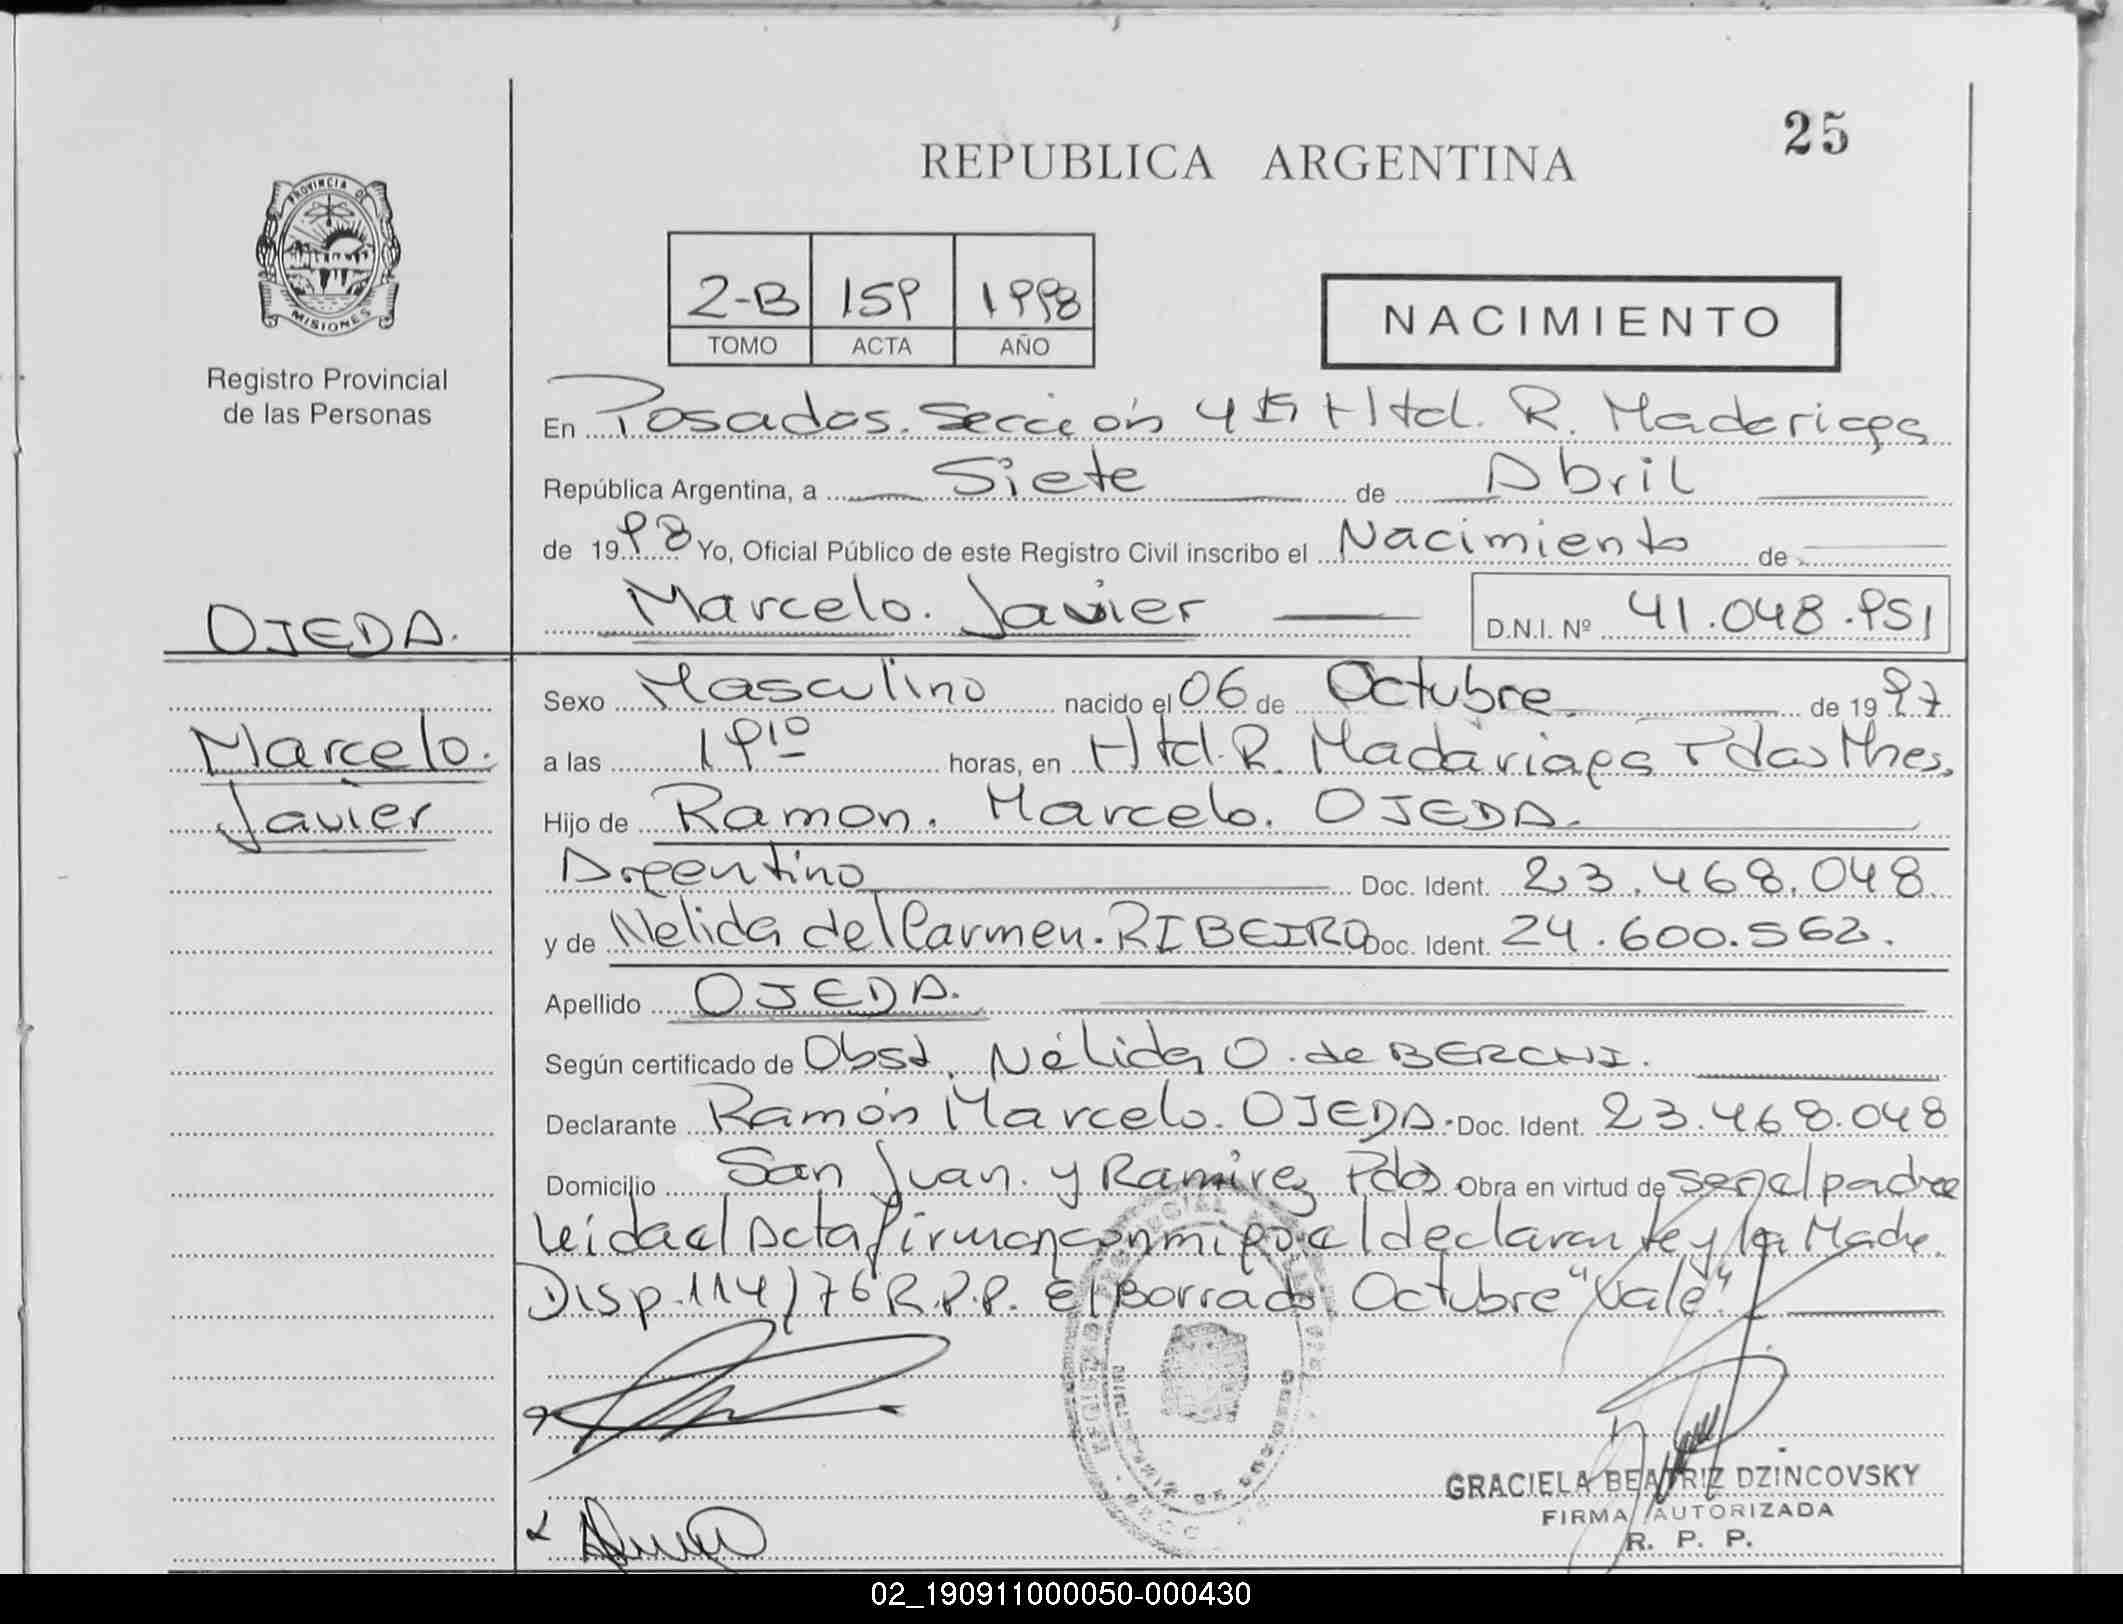 25
REPUBLICA ARGENTINA
PROVINCIA DE
MISIONES
Registro Provincial
de las Personas
2-B 159 1998
TOMO ACTA AÑO
NACIMIENTO
En Posadas. Sección 4ta Htal. R. Madariaga
República Argentina, a Siete de Abril
de 1998 Yo, Oficial Público de este Registro Civil inscribo el Nacimiento de
Marcelo. Javier D.N.I. Nº 41.048.951
OJEDA.
Marcelo.
Javier
Sexo Masculino nacido el 06 de Octubre de 1997
a las 19 10 horas, en Htal. R. Madariaga Pdas Mnes.
Hijo de Ramon. Marcelo. OJEDA.
Argentino Doc. Ident. 23.468.048
y de Nelida del Carmen. RIBEIRO Doc. Ident. 24.600.562.
Apellido OJEDA.
Según certificado de Obst. Nélida O. de BERCHI.
Declarante Ramón Marcelo. OJEDA. Doc. Ident. 23.468.048
Domicilio San Juan. y Ramirez Pdas Obra en virtud de ser el padre
leida el Acta firman conmigo el declarante y la Madre.
Disp. 114/76 R.P.P. El Borrado Octubre "Vale"
GRACIELA BEATRIZ DZINCOVSKY
FIRMA AUTORIZADA
R. P. P.
02_190911000050-000430